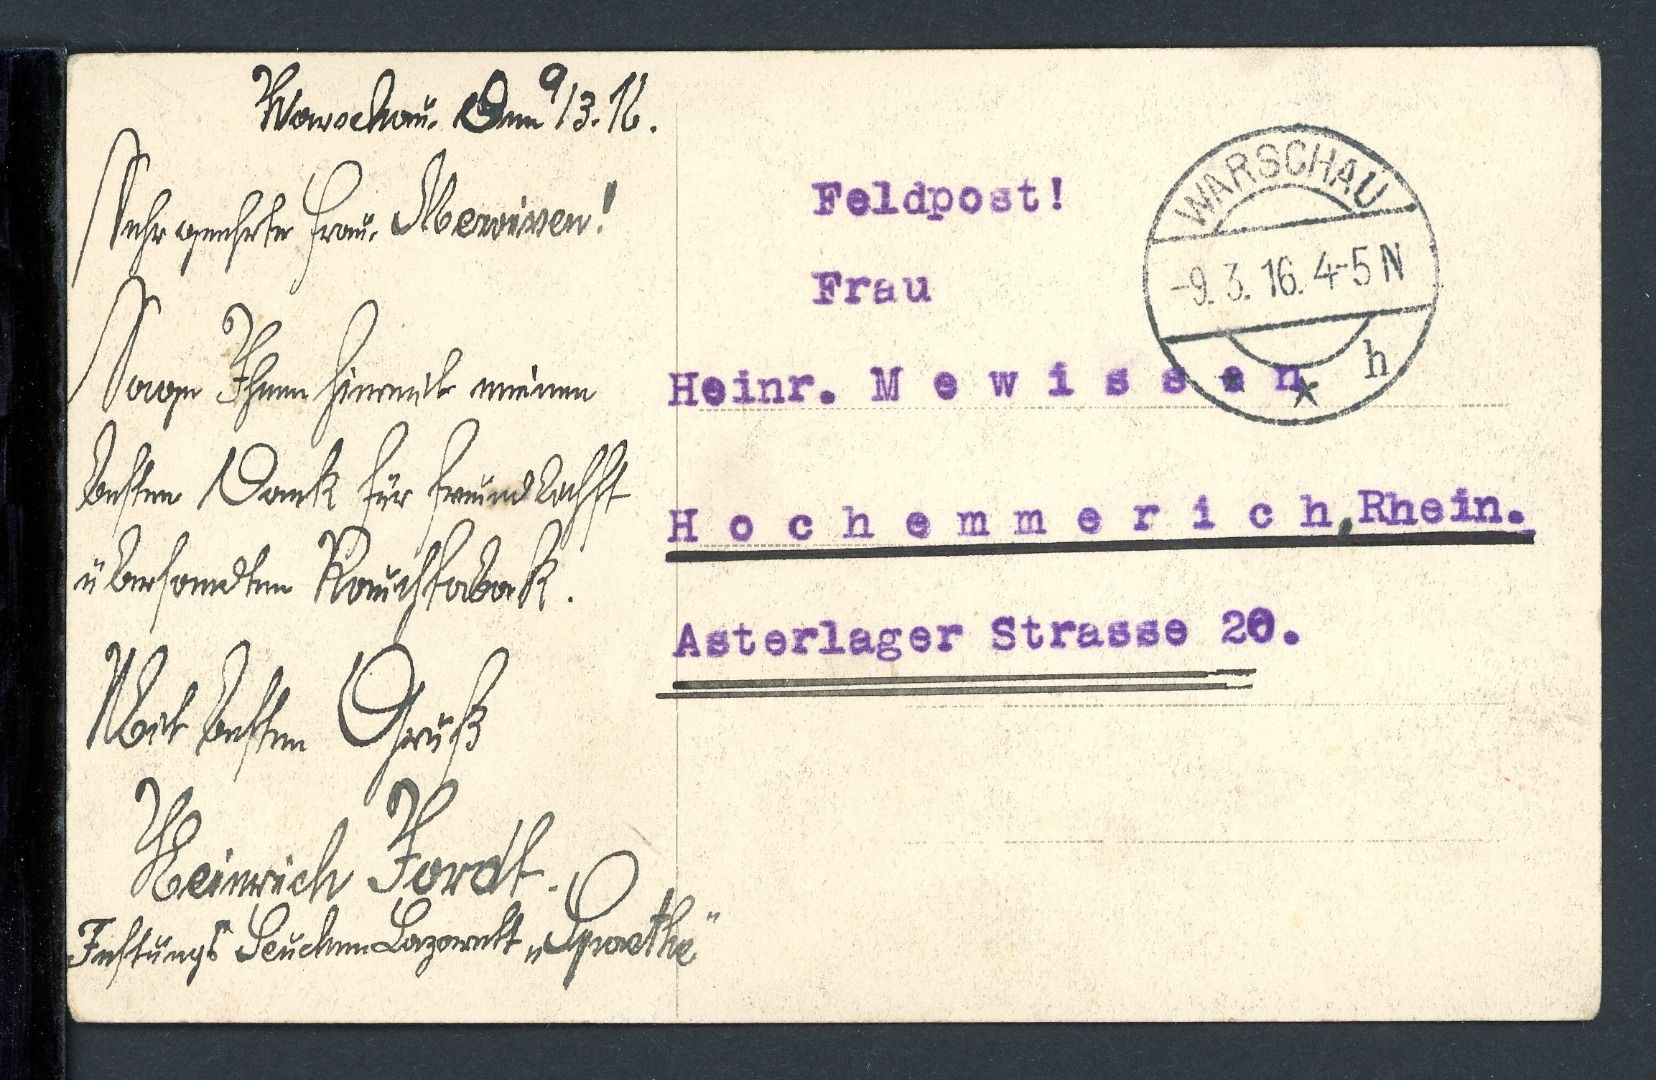 Warschau. Den 9/3.16.
Sehr geehrte Frau. Mewissen!
Sage Ihnen hiermit meinen
besten Dank für freundlichst
übersandten Rauchtabak.
Mit besten Gruß
Heinrich
Festungs Seuchen Lazarett „
Feldpost!
Frau
Heinr. Mewissen
Hochemmerich, Rhein.
Asterlager Strasse 20.
WARSCHAU
-9. 3. 16. 4-5 N
h